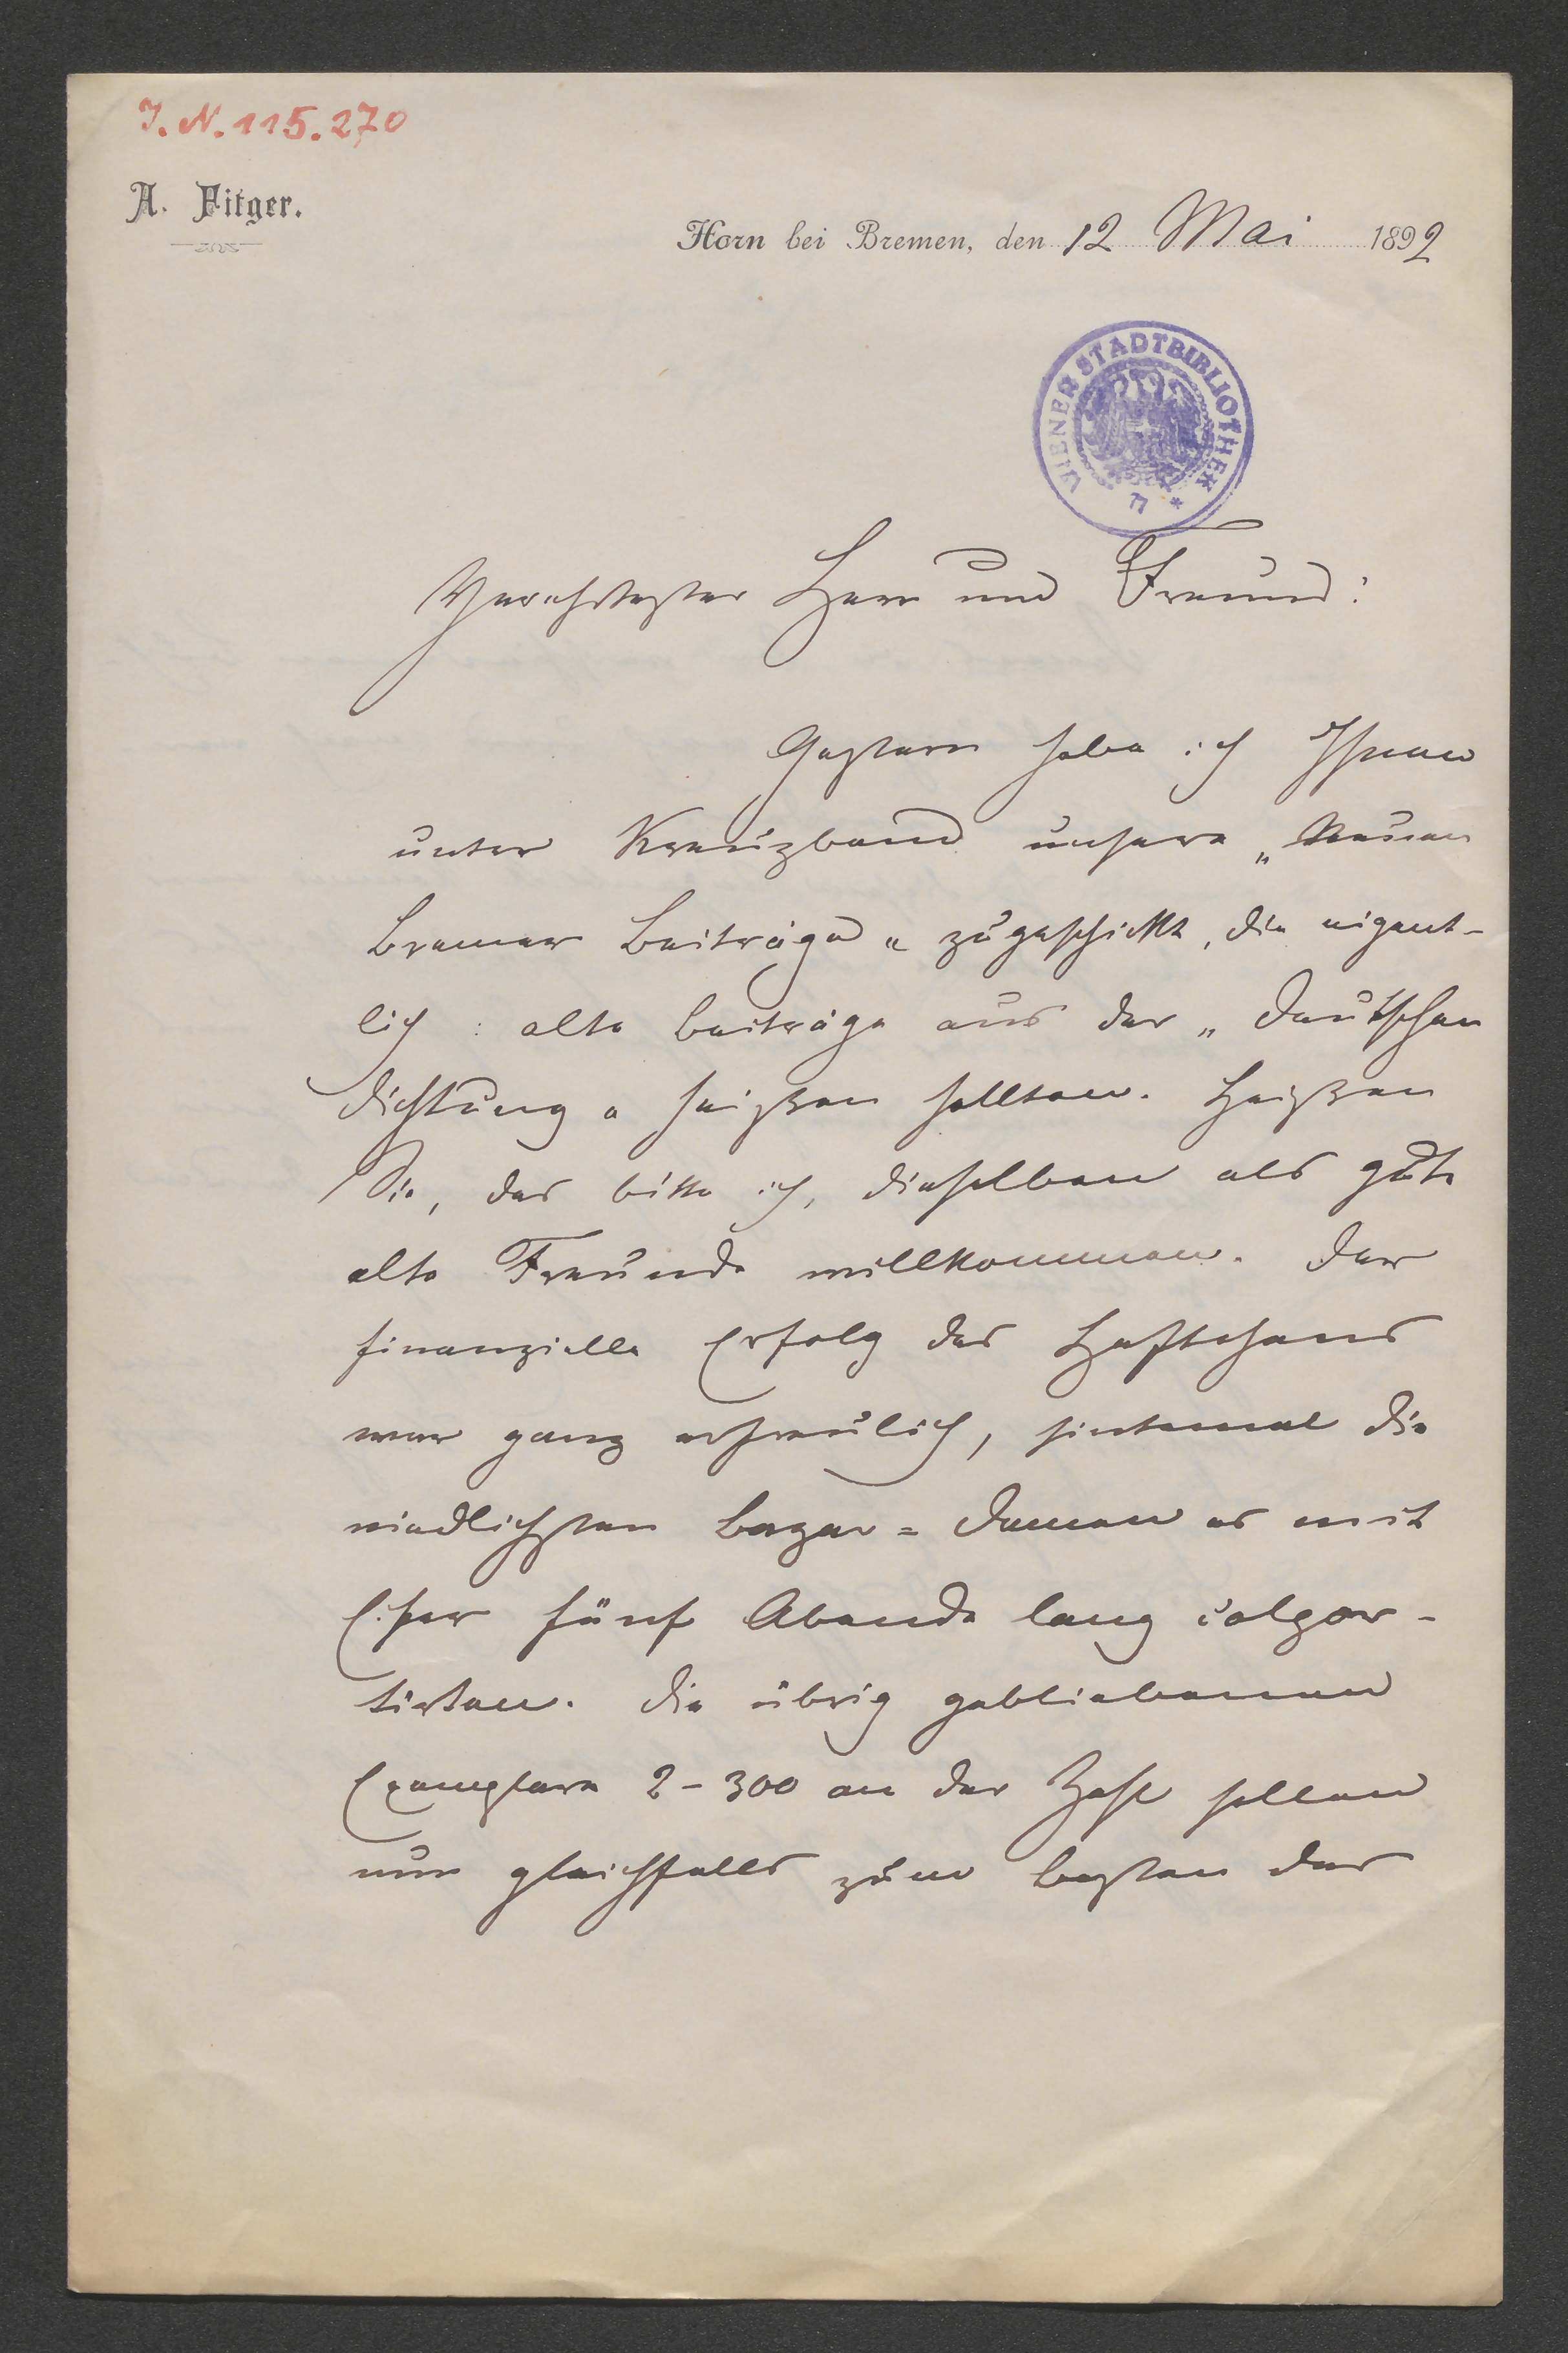 J. N. 115.270
A. Fitger.
Horn bei Bremen, den 12 Mai 1892
WIENER STADTBIBLIOTHEK
Verehrtester Herr und Freund:
Gestern habe ich Ihnen
unter Kreuzband unsere „Neuen
Bremer Beiträge" zugeschickt, die eigent-
lich: alte Beiträge aus der „Deutschen
Dichtung" heißen sollten. Heißen
Sie, das bitte ich, dieselben als gute
alte Freunde willkommen. Der
finanzielle Erfolg des Heftchens
war ganz erfreulich, sintemal die
niedlichsten Bazar-Damen es mit
Eifer fünf Abende lang colpor-
tirten. Die übrig gebliebenen
Exemplare 2-300 an der Zahl sollen
nun gleichfalls zum Besten des